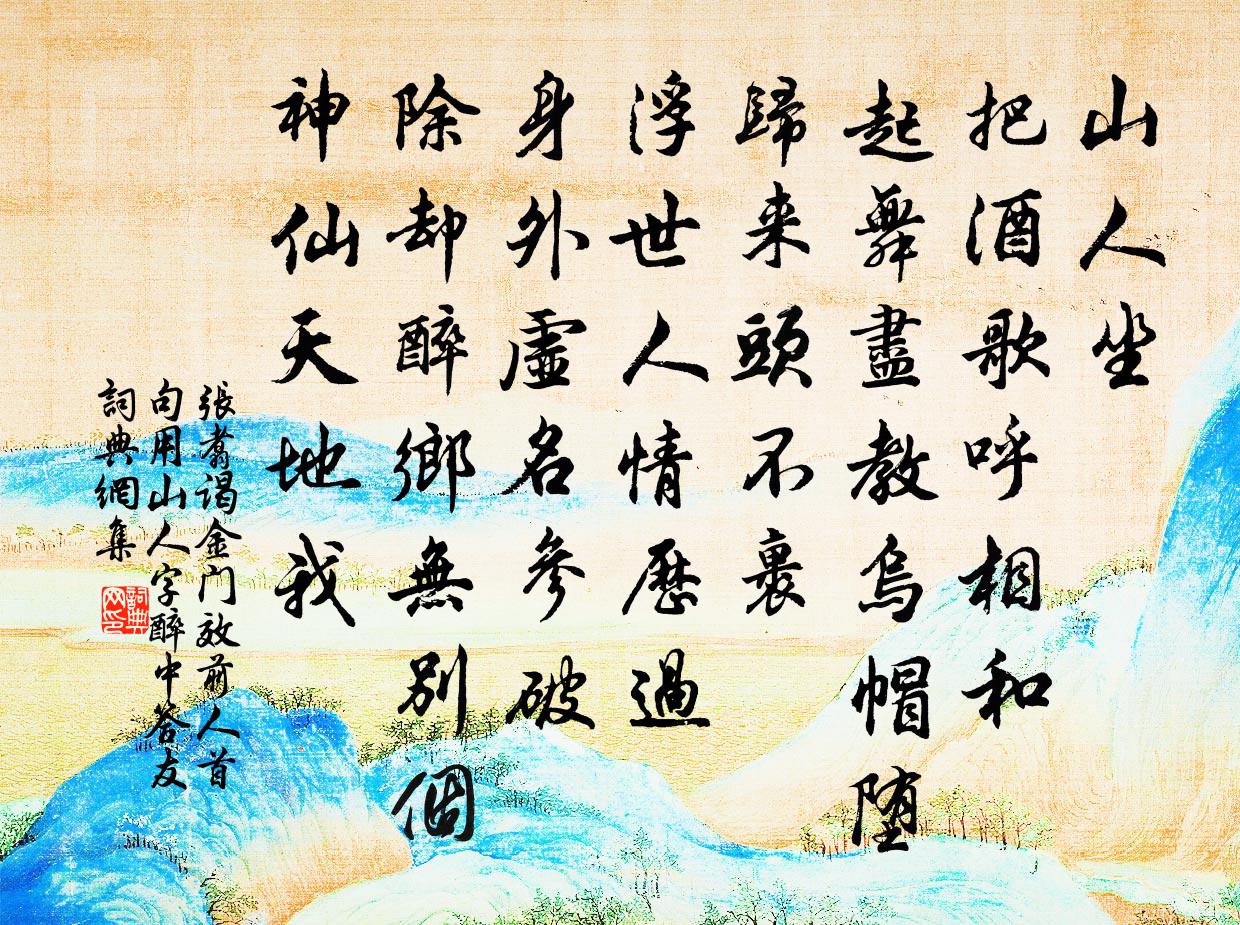 山人坐
把酒歌呼相和
起舞盡教烏帽墮
歸来頭不裹
浮世人情歷過
身外虛名參破
除却醉鄉無別個
神仙天地我
張翥谒金门效前人首
句用山人字醉中答友
詞典網集
詞典
网印